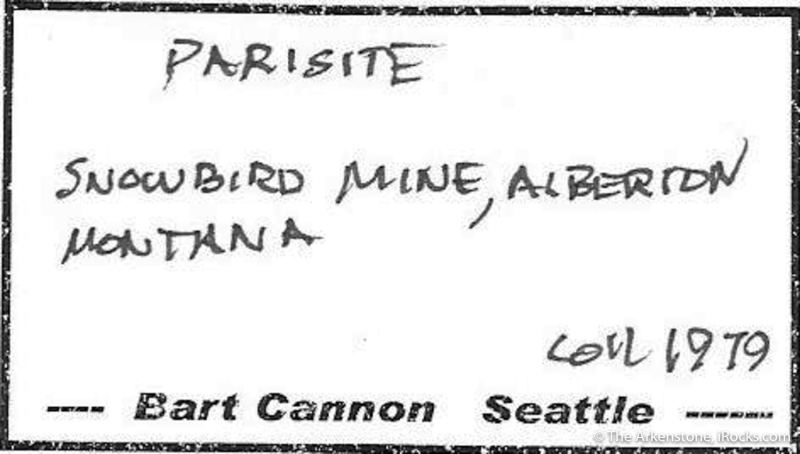 PARISITE
SNOWBIRD MINE, ALBERTON
MONTANA
COLL 1979
---- Bart Cannon Seattle ------
© The Arkenstone, iRocks.com